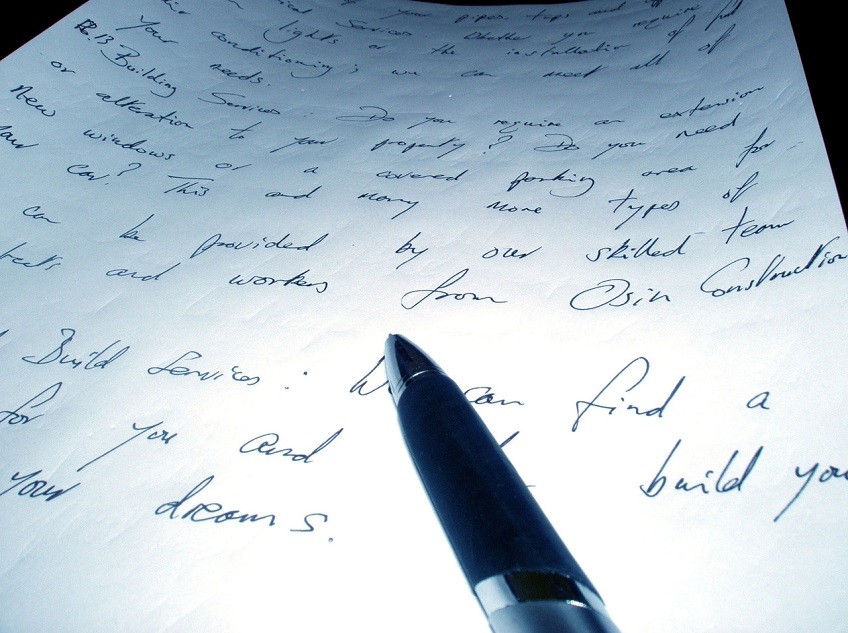 of your pipes taps and
your lights or the installation of
Services Whether you require
conditioning; we can meet all of
your needs.
Building Services: Do you require an extension
or alteration to your property? Do you need
New windows or a covered parking area for
your car? This and many more types of
can be provided by our skilled team
and workers from Osin Construction
Build Services: We can find a
for you and build you
your dreams.